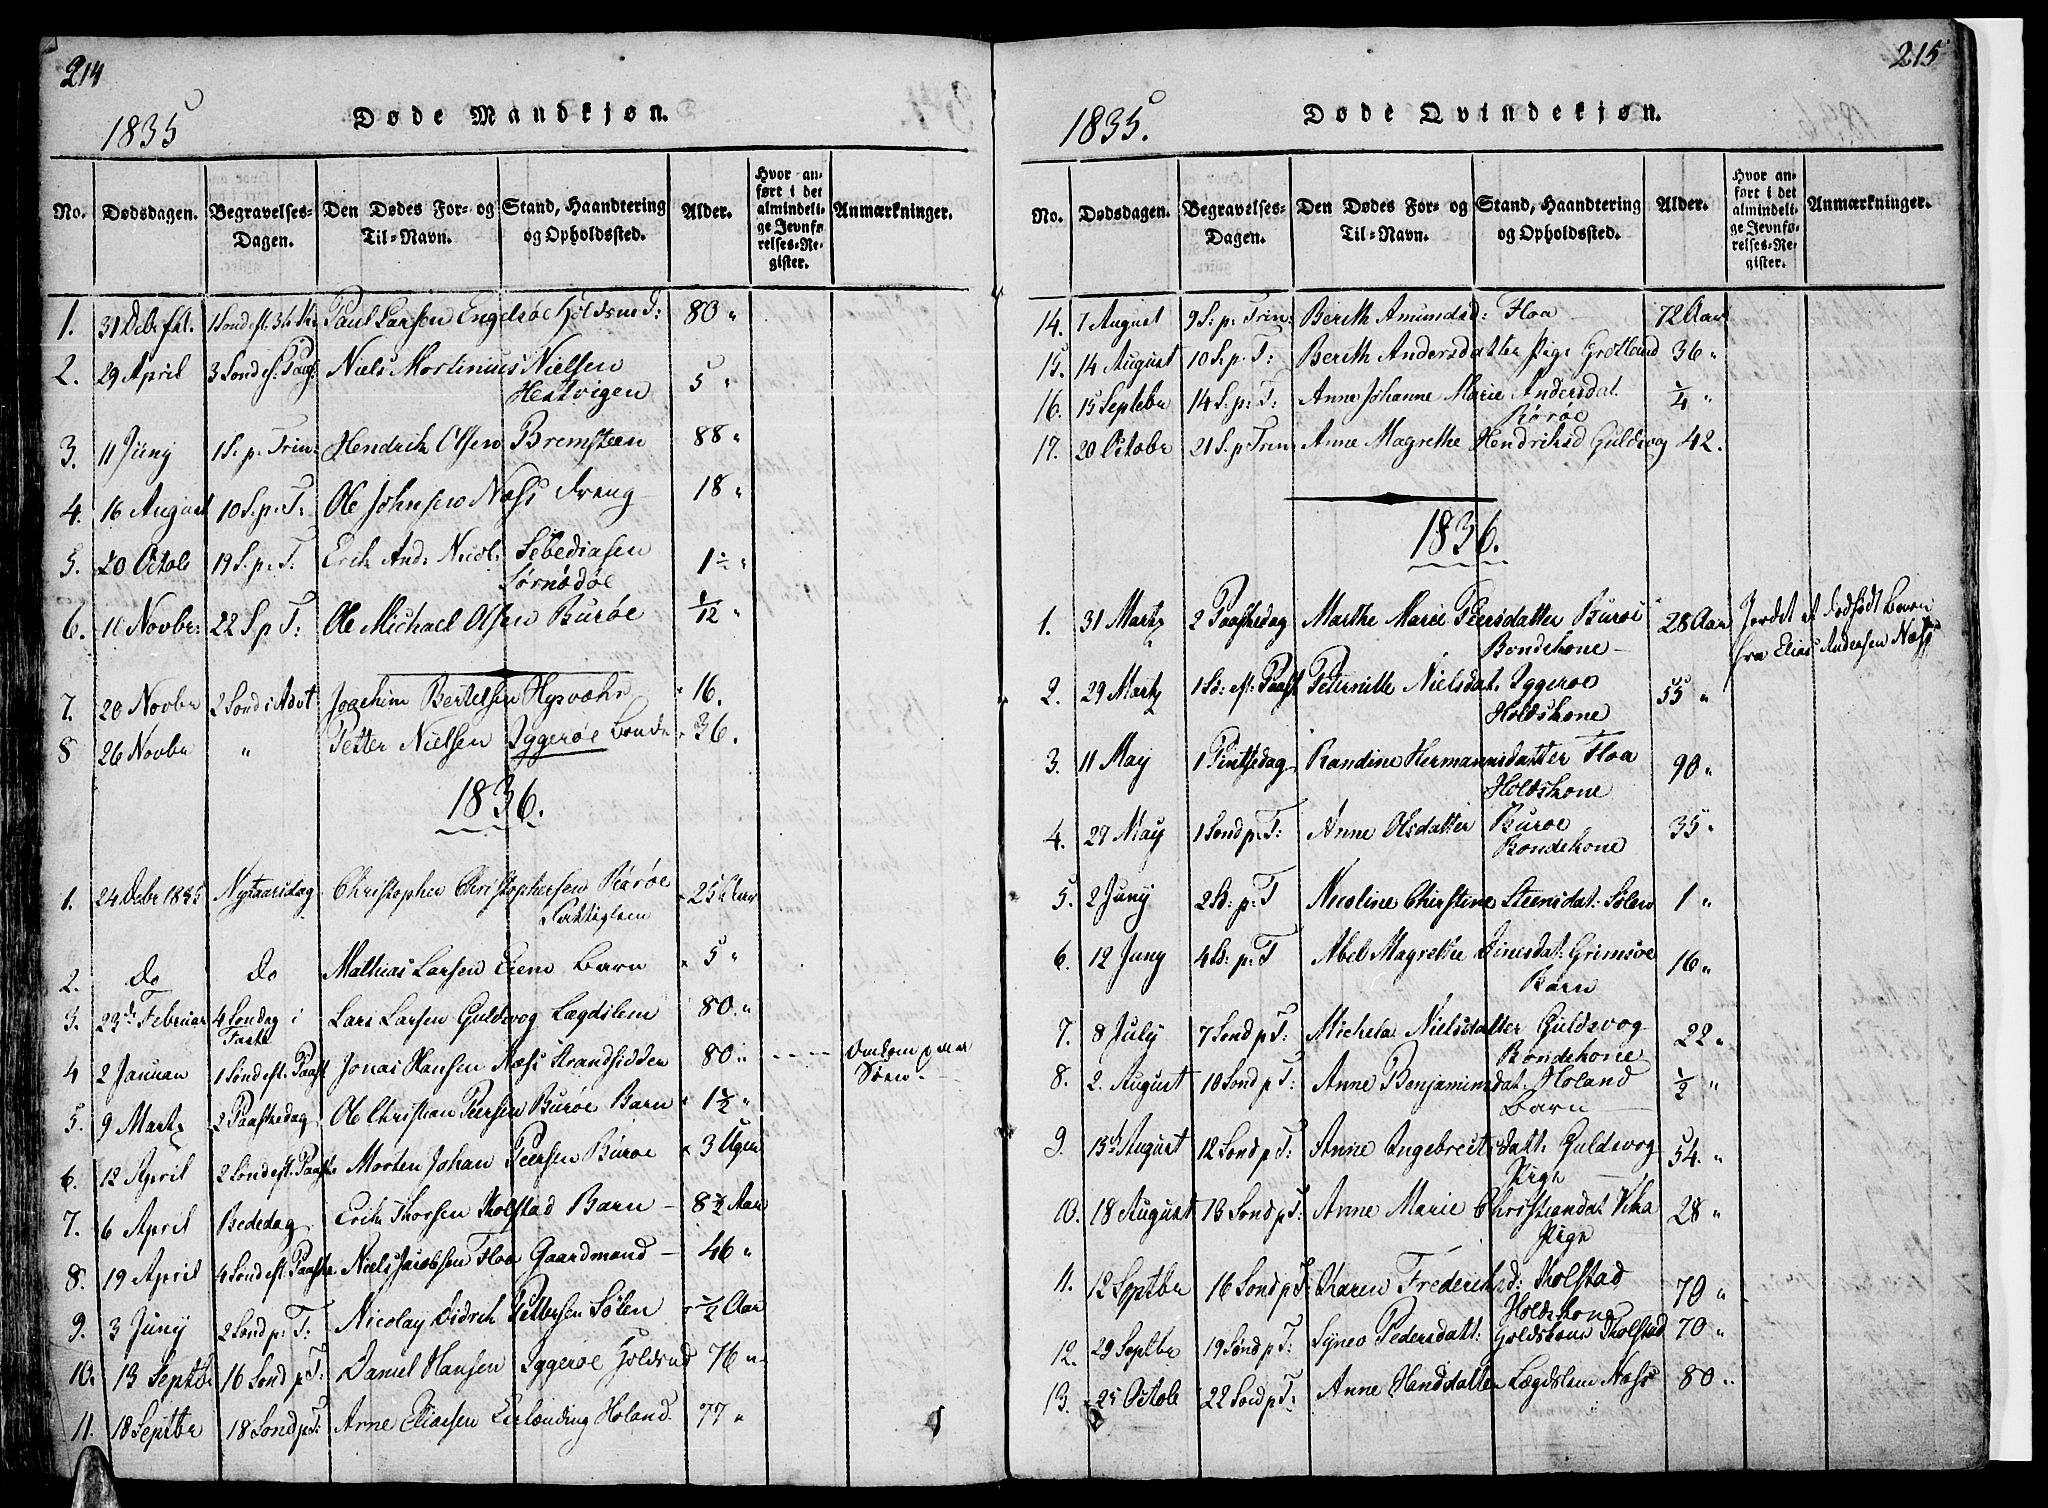 214
1835
Døde Mandkjøn.
No. Dødsdagen. Begravelses-Dagen. Den Dødes For- og Til-Navn. Stand, Haandtering og Opholdssted. Alder. Hvor anført i det almindelige Jevnførelses-Register. Anmærkninger.
1. 31 Debr 1 Sond eft: Paul Larsen Engelsøe 80 "
2. 29 April 3 Sond ef: Niels Mortinius Nielsen
Hestvigen 5 "
3. 11 Juny 1 S. p. Trin: Hendrik Olsen Bremsteen 88 "
4. 16 August 10 S. p. T: Ole Johnsen Næss dreng 18 "
5. 20 Octob 19 S. p. T. Erik And: Nicol: Sebediasen
Sørnødøe 1 "
6. Novbr: 22 S p T: Ole Michael Olsen Burøe 1/12 "
7. 20 Novbr 2 Sond i Advt Joachim Bertelsen Hysvær 16.
8 26 Novbr " Petter Nielsen Iggerøe bonde 36.
1836.
1. 24 Decbr 1835 Nytaarsdag Christopher Christophersen Rørøe
25 Aar
2. do do Mathias Larsen barn 5 "
3. 23de Februar 4 Søndag i
Faste Lars Larsen Guldvog Lægdslem 80. "
4 2 Januari 1 Sønd eft. Paask Jonas Hansen Næss Strandsidder 80 " Omkom paa
Søen
5. 9 Martz 2 Paaskedag Ole Christian Peersen Burøe Barn 1 1/2 "
6. 12 April 2 Sond eft. Paaske Morten Johan Peersen Burøe 3 Uger
7. 6 April Bededag Erik Thorsen Tholstad Barn 8 1/2 Aar
8. 19 April 4 Sond eft Paaske Niels Jacobsen Floa Gaardmand 46 "
9. 3 Juny 2 Sond p: T: Nicolay Didrik Pettersen Sølen 1/2 Aar
10. 13 Septbr 16 Sond p T: Daniel Hansen Iggerøe 76 "
11. 18 Septbr 18 Sond p T: Arne Eliassen Holand. 77 "
215
1835.
Døde Qvindekjøn.
No. Dødsdagen. Begravelses-Dagen. Den Dødes For- og Til-Navn. Stand, Haandtering og Opholdssted. Alder. Hvor anført i det almindelige Jevnførelses-Register. Anmærkninger.
14. 7 August 9 S. p. Trin: Berith Amundsd: Floa 72 Aar
15. 14 August 10 S. p. T: Berith Andersdatter Pige Grotland 36 "
16. 15 Septebr 14 S. p: T: Anne Johanne Marie Andersdat.
Rørøe 1/4 "
17. 20 Octobr 21 S. p Trin: Anne Magrethe Hendriksd Guldvog 42.
1836.
1. 31 Martz 2 Paaskedag Marthe Marie Peersdatter Burøe
Bondekone 28 Aar Jordet et dødfødt barn
fra Elias Andersen Næss
2. 29 Martz 1 Sd: ef: Paask Pernille Nielsdat. Iggerøe
Holdskone 55 "
3. 11 May 1 Pintsedag Randine Hermannsdatter Floa
Holdskone 90 "
4. 27 May 1 Sond p: T: Anne Olsdatter Burøe
Bondekone 35 "
5. 2 Juny 2 Sd: p: T Nicoline Christine Steensdat: Sølen 1 "
6. 12 Juny 4 Sd: p: T Abel Magrethe Dinesdat: Grimsøe
Barn 16 "
7. 8 July 7 Sond p T: Michela Nielsdatter Guldvog
Bondekone 22 "
8. 2. August 10 Sond p T: Anne Benjaminsdat. Holand
barn 1/2 "
9. 15de August 12 Sond p T: Anne Ingebreitsdatt: Guldvog
Pige 54. "
10. 18 August 13 Sond p T: Anne Marie Christiansdat Vika
Pige 28 "
11. 12 Septbr 16 Sond p T: Karen Frederiksd: Tholstad
Holdskone 70 "
12. 29 Septbr 19 Sønd p T: Synev Pedersdatt: Holdskone Tholstad 70 "
13. 25 Octob 22 Sond p T: Anne Hansdatter Lægdslem Næss 80 "